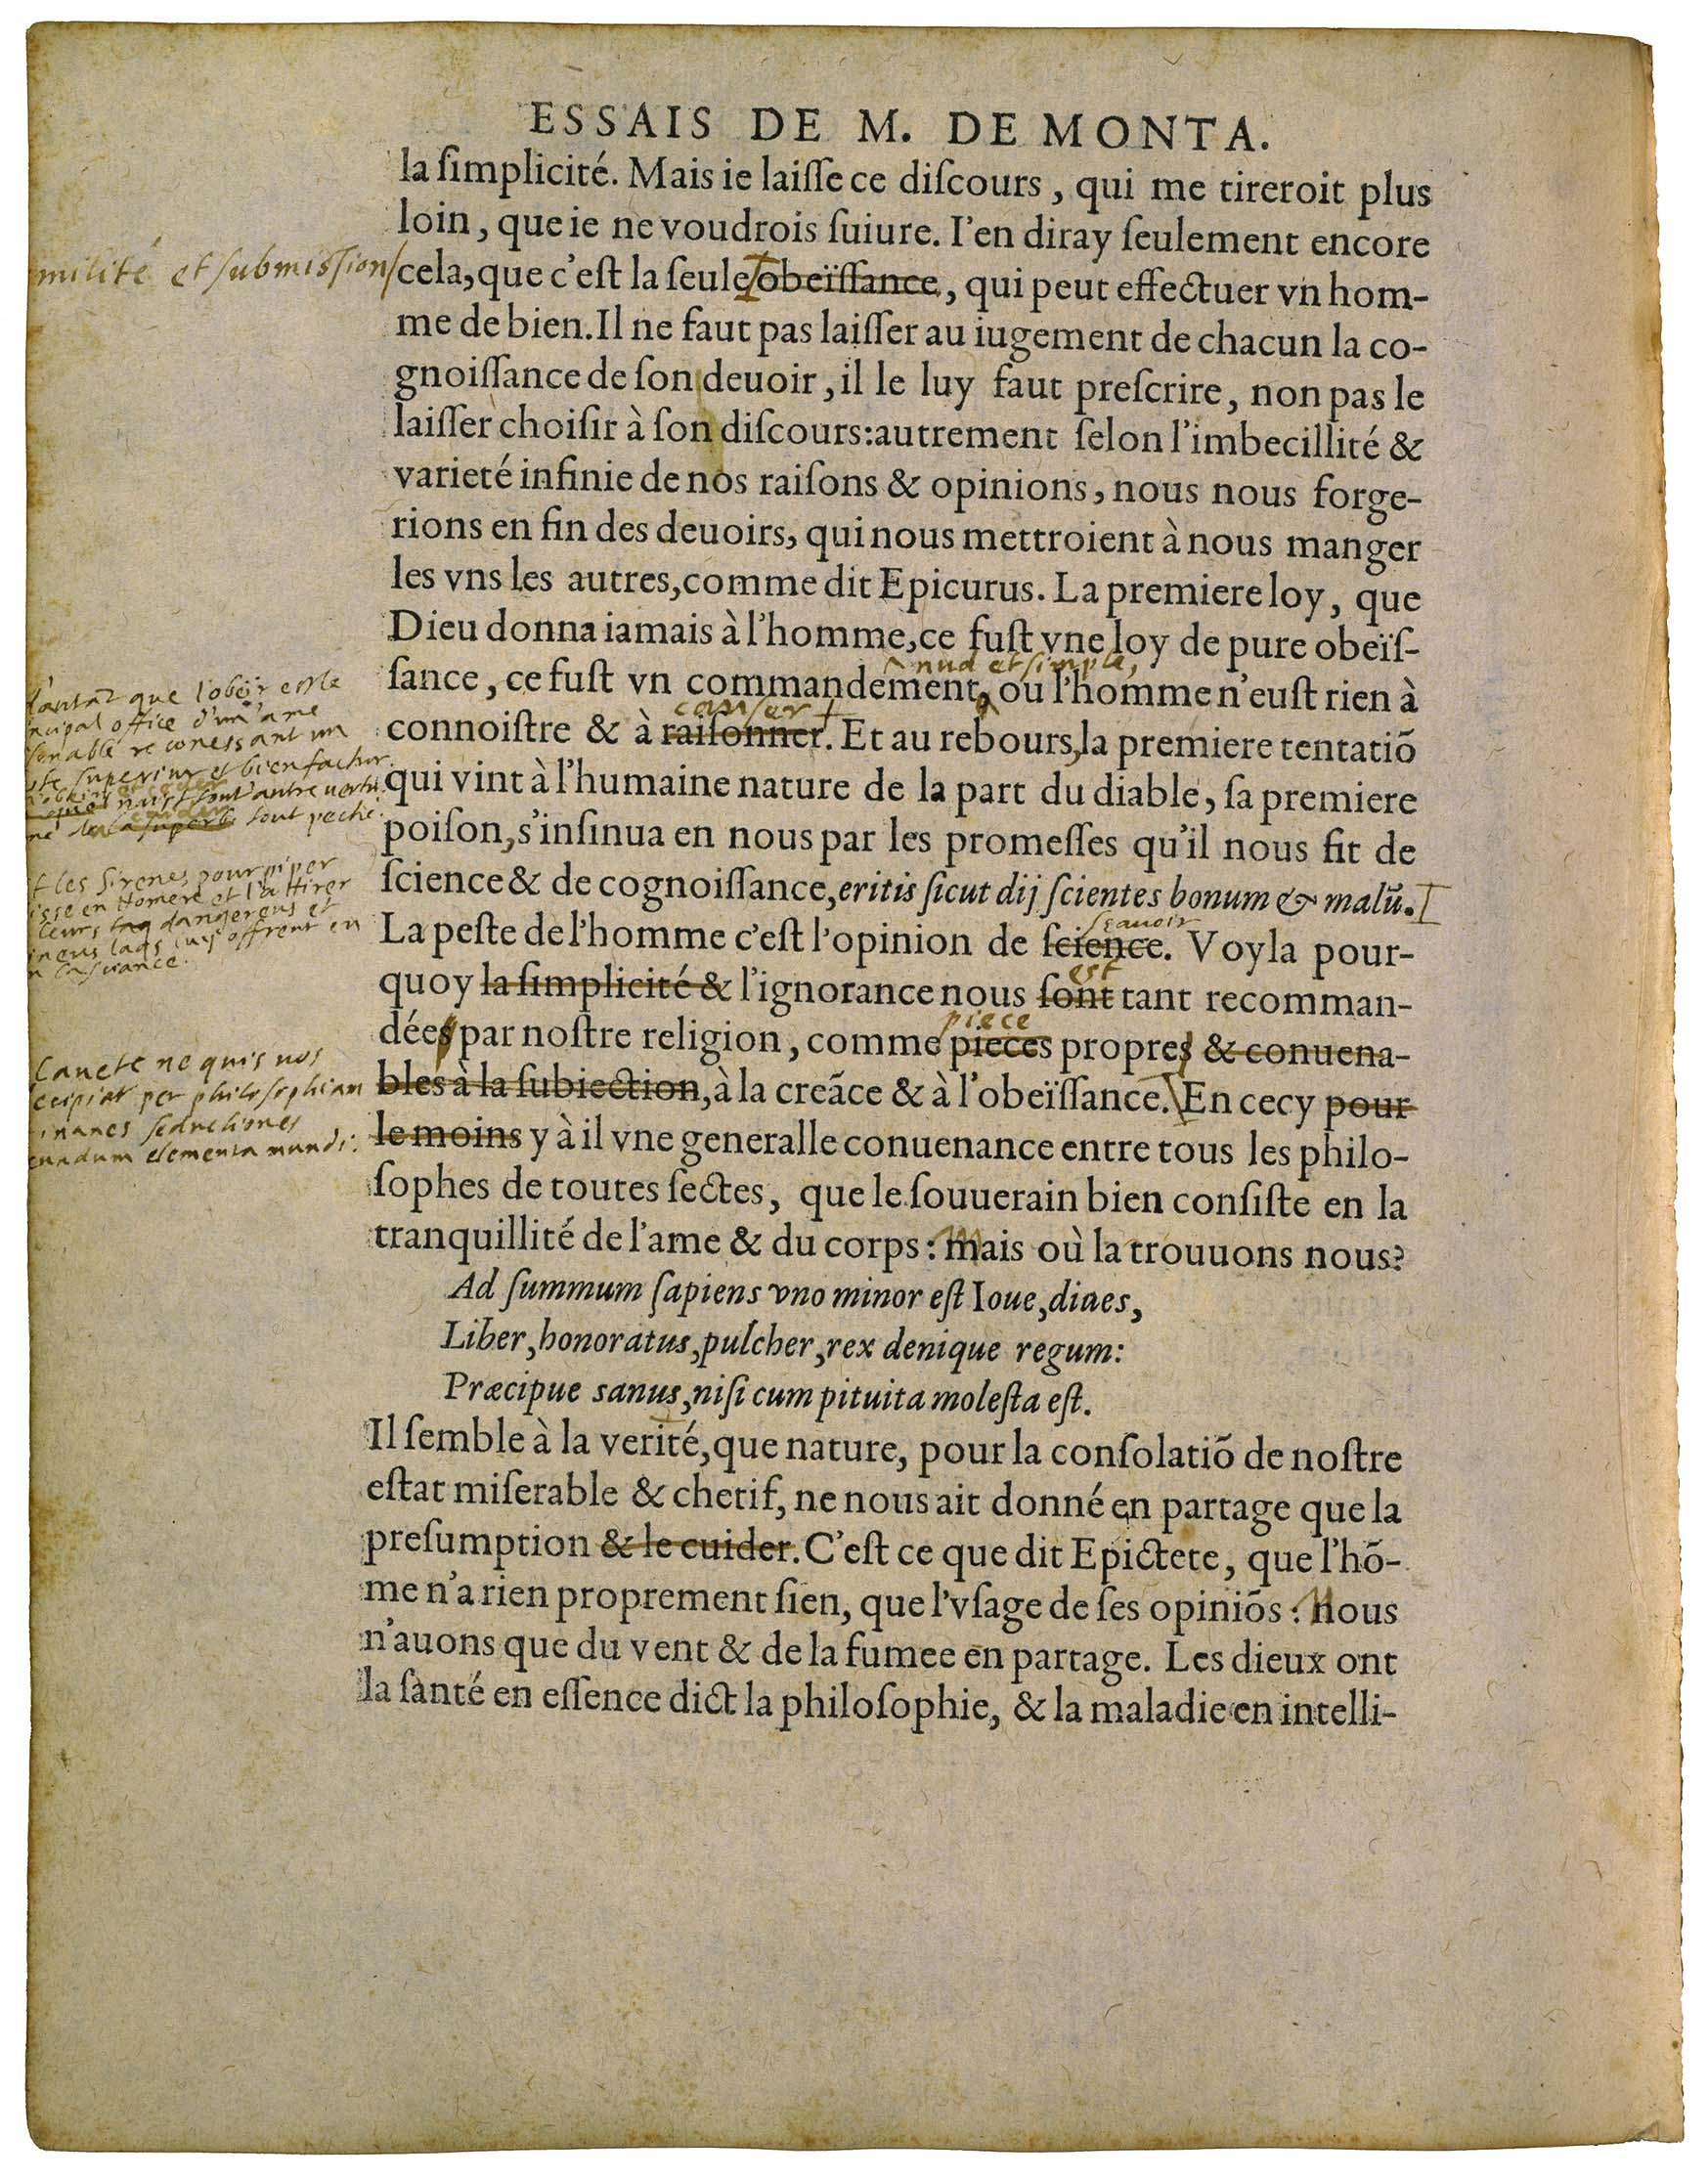 ESSAIS DE M. DE MONTA.
la ſimplicité. Mais ie laiſſe ce diſcours, qui me tireroit plus
loin, que ie ne voudrois ſuiure. I'en diray ſeulement encore
milité et submission/
cela, que c'eſt la ſeule obeïſſance, qui peut effectuer vn hom-
me de bien. Il ne faut pas laiſſer au iugement de chacun la co-
gnoiſſance de ſon deuoir, il le luy faut preſcrire, non pas le
laiſſer choiſir à ſon diſcours: autrement ſelon l'imbecillité &
varieté infinie de nos raiſons & opinions, nous nous forge-
rions en fin des deuoirs, qui nous mettroient à nous manger
les vns les autres, comme dit Epicurus. La premiere loy, que
Dieu donna iamais à l'homme, ce fuſt vne loy de pure obeïſ-
nud et simple,
ſance, ce fuſt vn commandement, ou l'homme n'euſt rien à
causer
connoiſtre & à raiſonner. Et au rebours, la premiere tentatiõ
qui vint à l'humaine nature de la part du diable, ſa premiere
poiſon, s'inſinua en nous par les promeſſes qu'il nous fit de
ſcience & de cognoiſſance, eritis ſicut dij ſcientes bonum & malũ.
sçauoir
La peſte de l'homme c'eſt l'opinion de ſcience. Voyla pour-
est
quoy la ſimplicité & l'ignorance nous ſont tant recomman-
piece
dées par noſtre religion, comme pieces propres & conuena-
bles à la ſubiection, à la creãce & à l'obeïſſance. En cecy pour
le moins y à il vne generalle conuenance entre tous les philo-
ſophes de toutes ſectes, que le ſouuerain bien conſiſte en la
tranquillité de l'ame & du corps: mais où la trouuons nous?
Ad ſummum ſapiens vno minor eſt Ioue, diues,
Liber, honoratus, pulcher, rex denique regum:
Præcipue sanus, niſi cum pituita moleſta eſt.
Il ſemble à la verité, que nature, pour la conſolatiõ de noſtre
eſtat miſerable & chetif, ne nous ait donné en partage que la
preſumption & le cuider. C'eſt ce que dit Epictete, que l'hõ-
me n'a rien proprement ſien, que l'vſage de ſes opiniõs: Nous
n'auons que du vent & de la fumee en partage. Les dieux ont
la ſanté en eſſence dict la philoſophie, & la maladie en intelli-
que l'obeir est le
ncipal office d'un'ame
sonable reconessant un
superiur et bienfactur.
naist tout'autre vertu
de la superbe tout peche.
t les Sirenes pour piper
isse en Homere et l'attirer
leurs dangereus et
ineus laqs luy offrent en
Cauete ne quis uos
ecipiat per philosophiam
inanes seductiones
cundum elementa mundi: